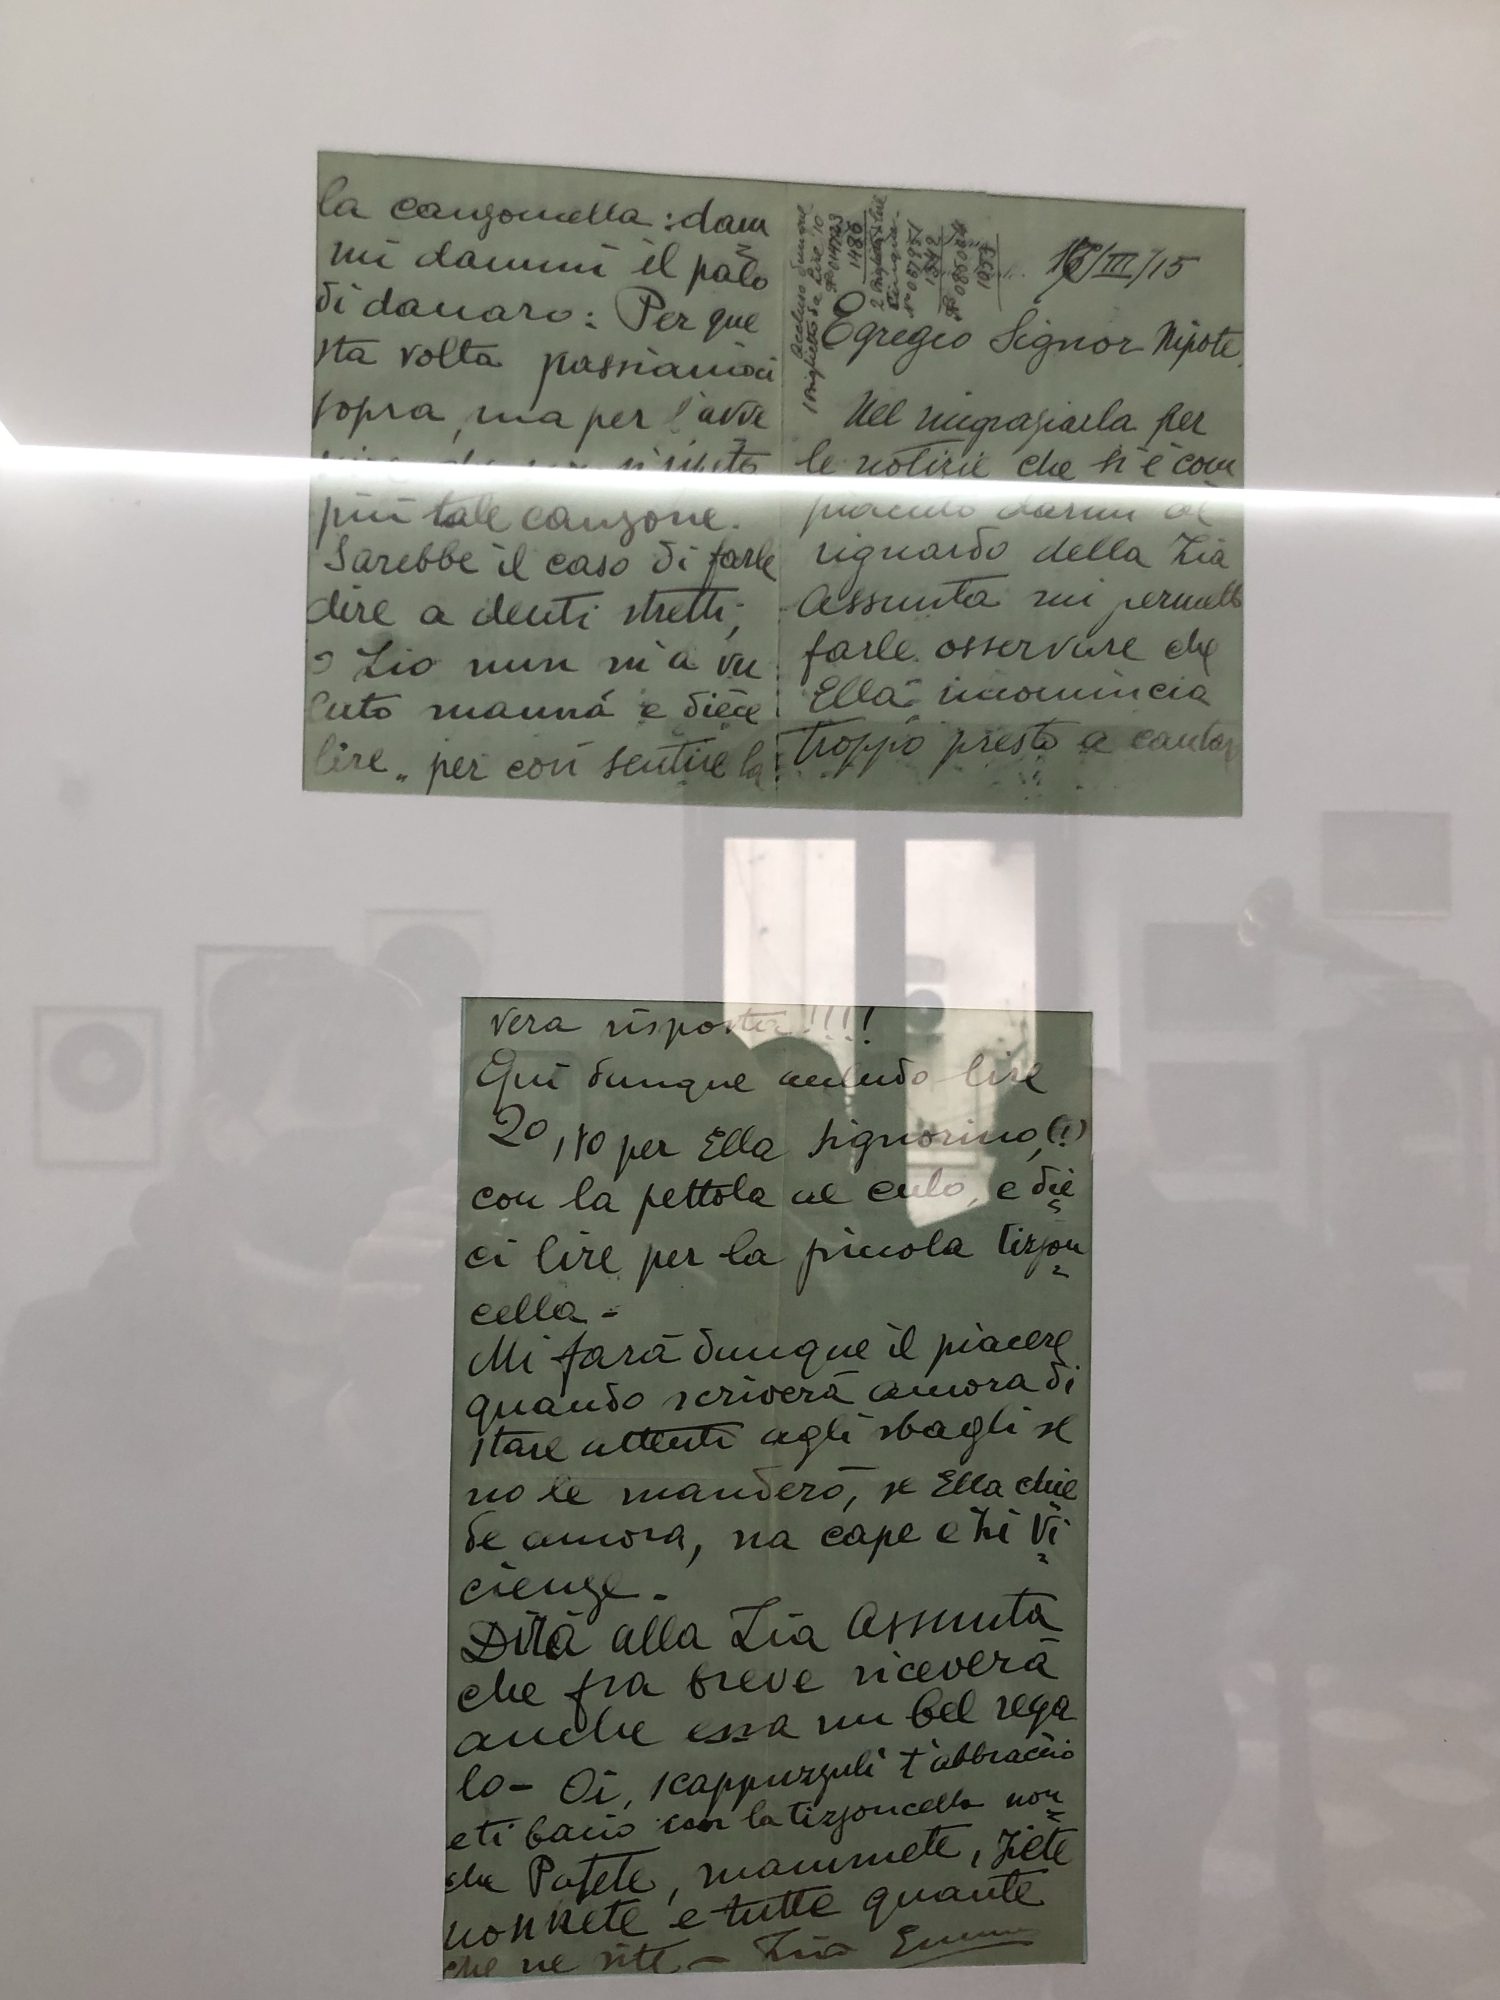 18/III/15
Egregio Signor Nipote,
Nel ringraziarla per
le notizie che si è com
piaciuto darmi al
riguardo della Zia
Assunta mi permetto
farle osservare che
Ella incomincia
troppo presto a cantar
la canzonetta: dam
mi dammi il palo
di danaro: Per que
sta volta passiamoci
sopra, ma per l'avve
nire che non si ripeta
più tale canzone.
Sarebbe il caso di farle
dire a denti stretti,
Zio nun m'à vu
luto manná e diece
lire„ per così sentire la
vera risposta!!!!
Qui dunque accludo lire
20, per Ella signorino,(!)
con la pettola al culo, e die
ci lire per la piccola tizzon
cella -
Mi farà dunque il piacere
quando scriverà ancora di
stare attenti agli sbagli se
no le manderò, se Ella chie
de ancora, na cape e Zi Vi
cienze.
Dirà alla Zia Assunta
che fra breve riceverà
anche essa un bel rega
lo - Oi, scappuzzuli t'abbraccio
e ti bacio con la tizzoncella non
che Patete, mammete, Ziete
nonnete e tutte quante
che ne site - Zio